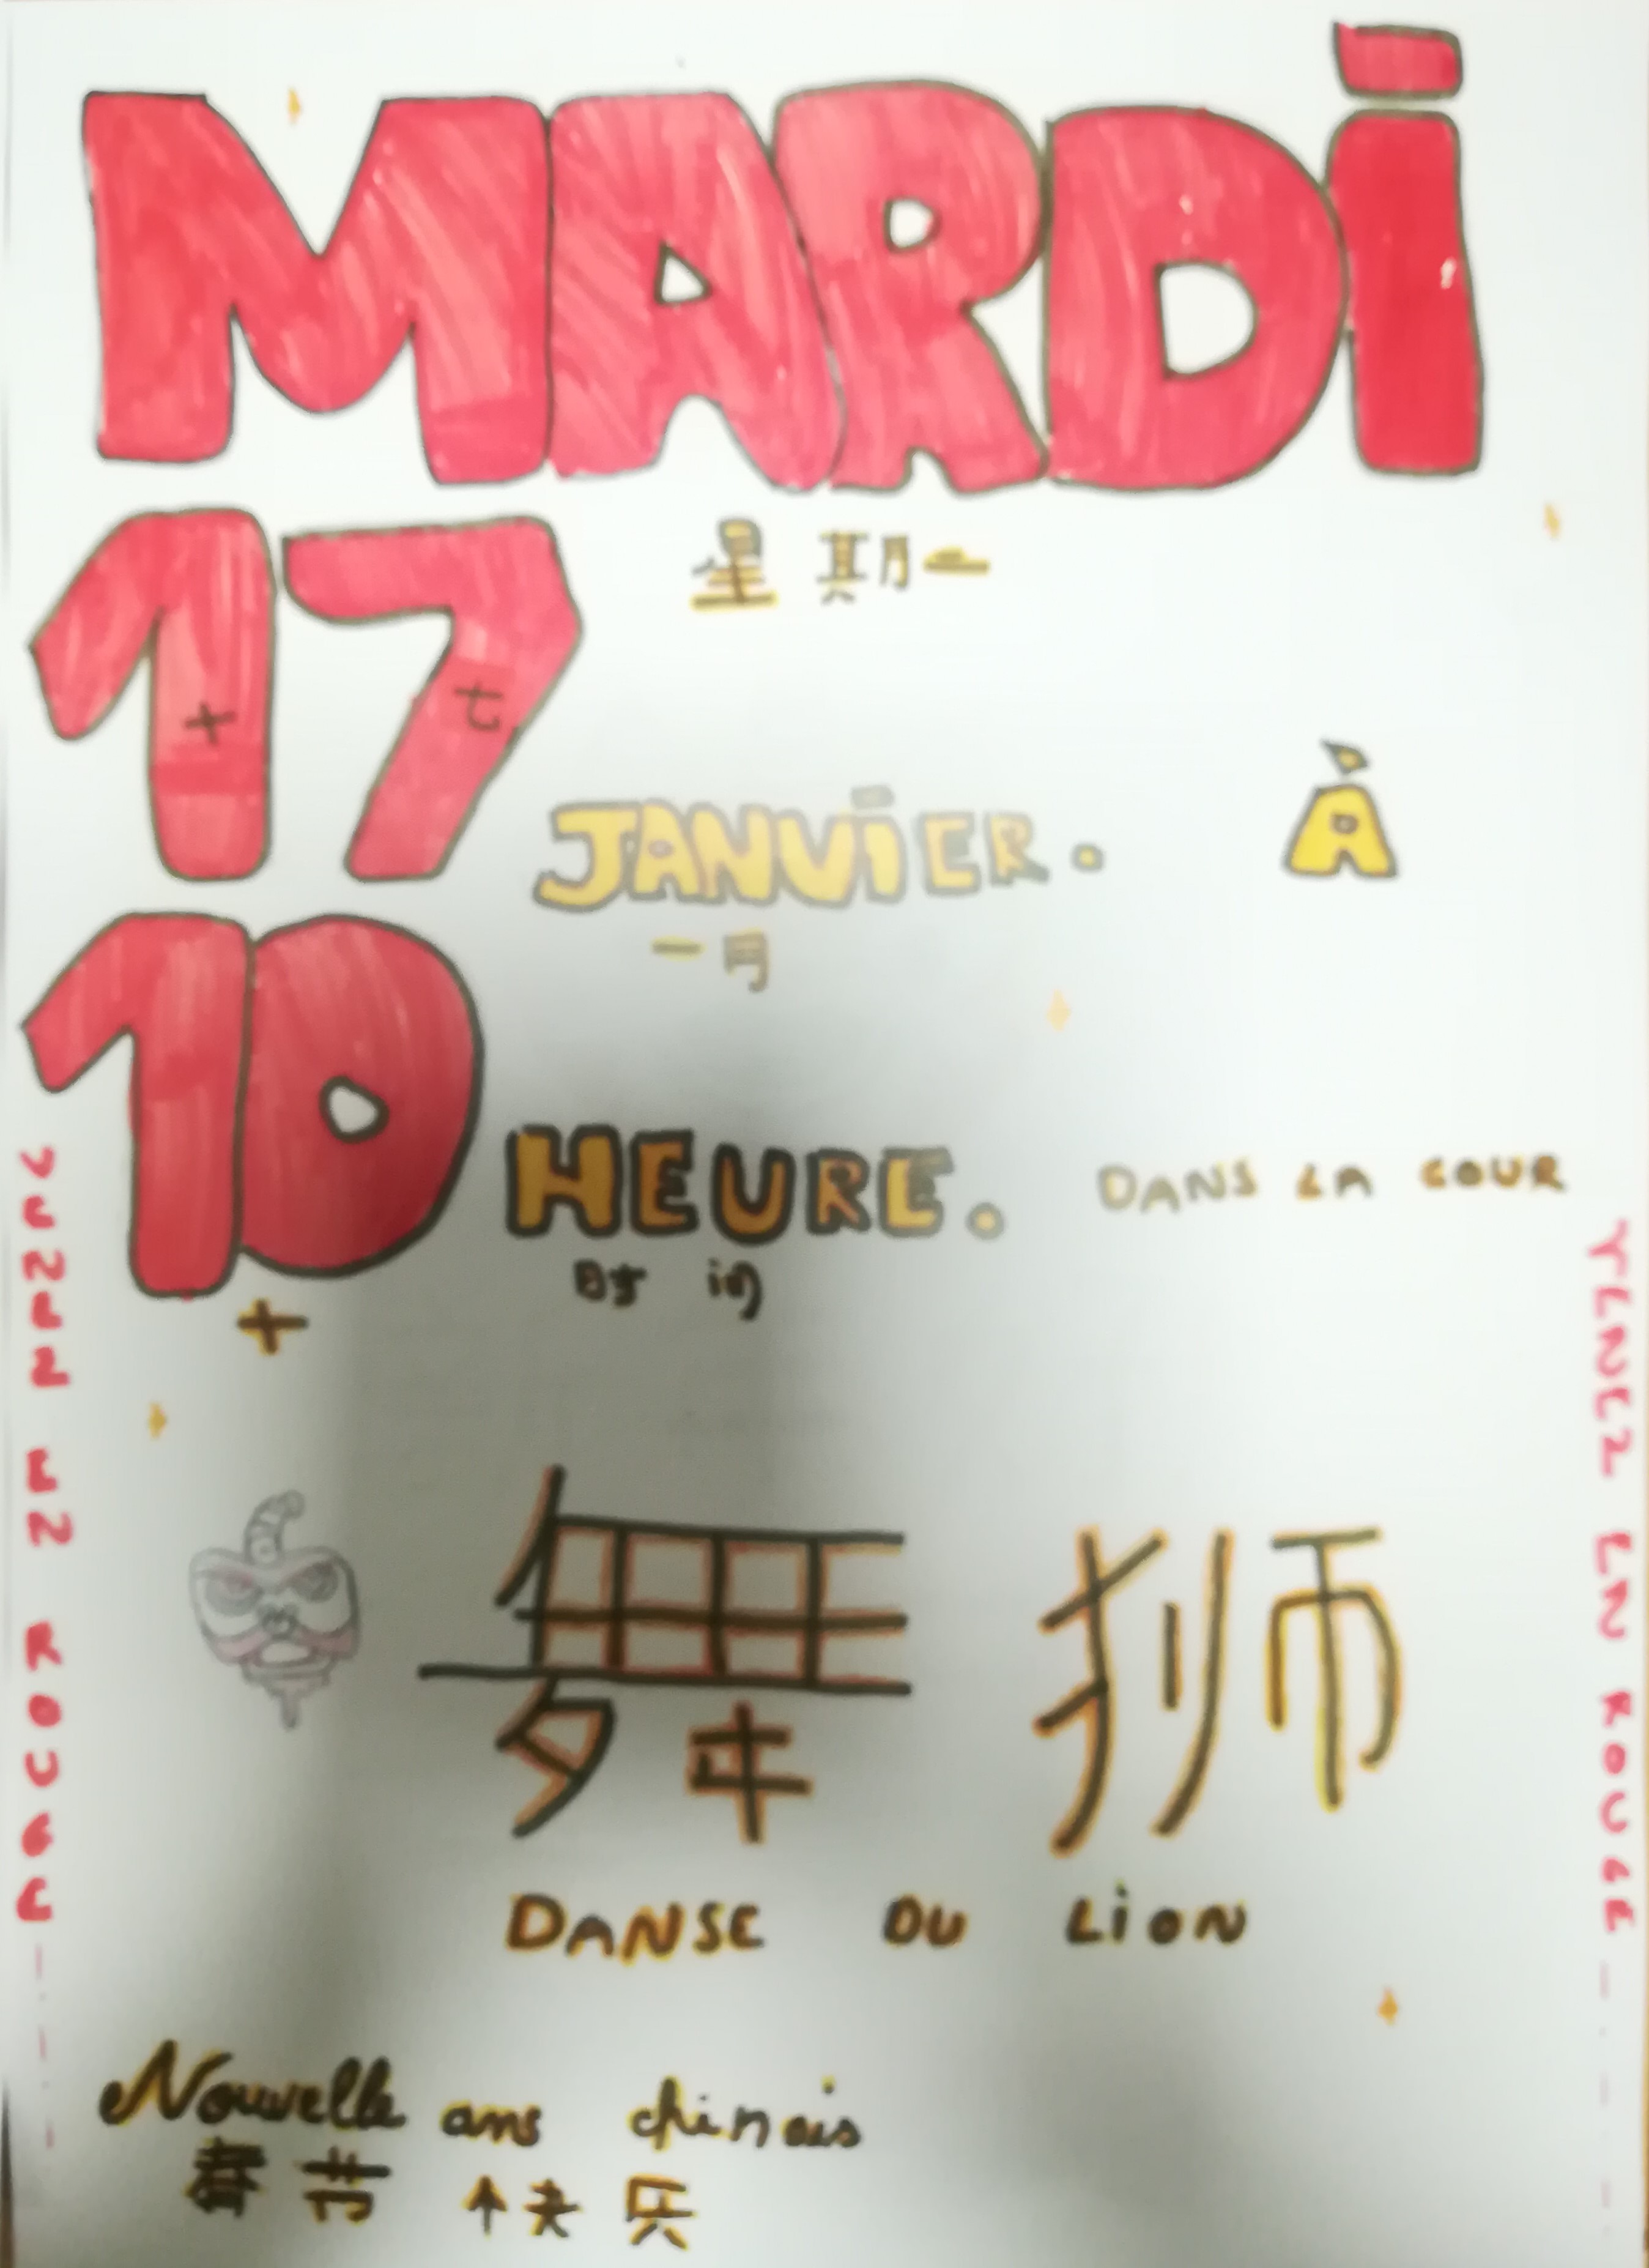 MARDI
17
星期二
十 七
JANVIER. À
一月
10 HEURE. DANS LA COUR
十
时间
舞狮
DANSE DU LION
Nouvelle ans chinois
春节快乐
VENEZ EN ROUGE
VENEZ EN ROUGE